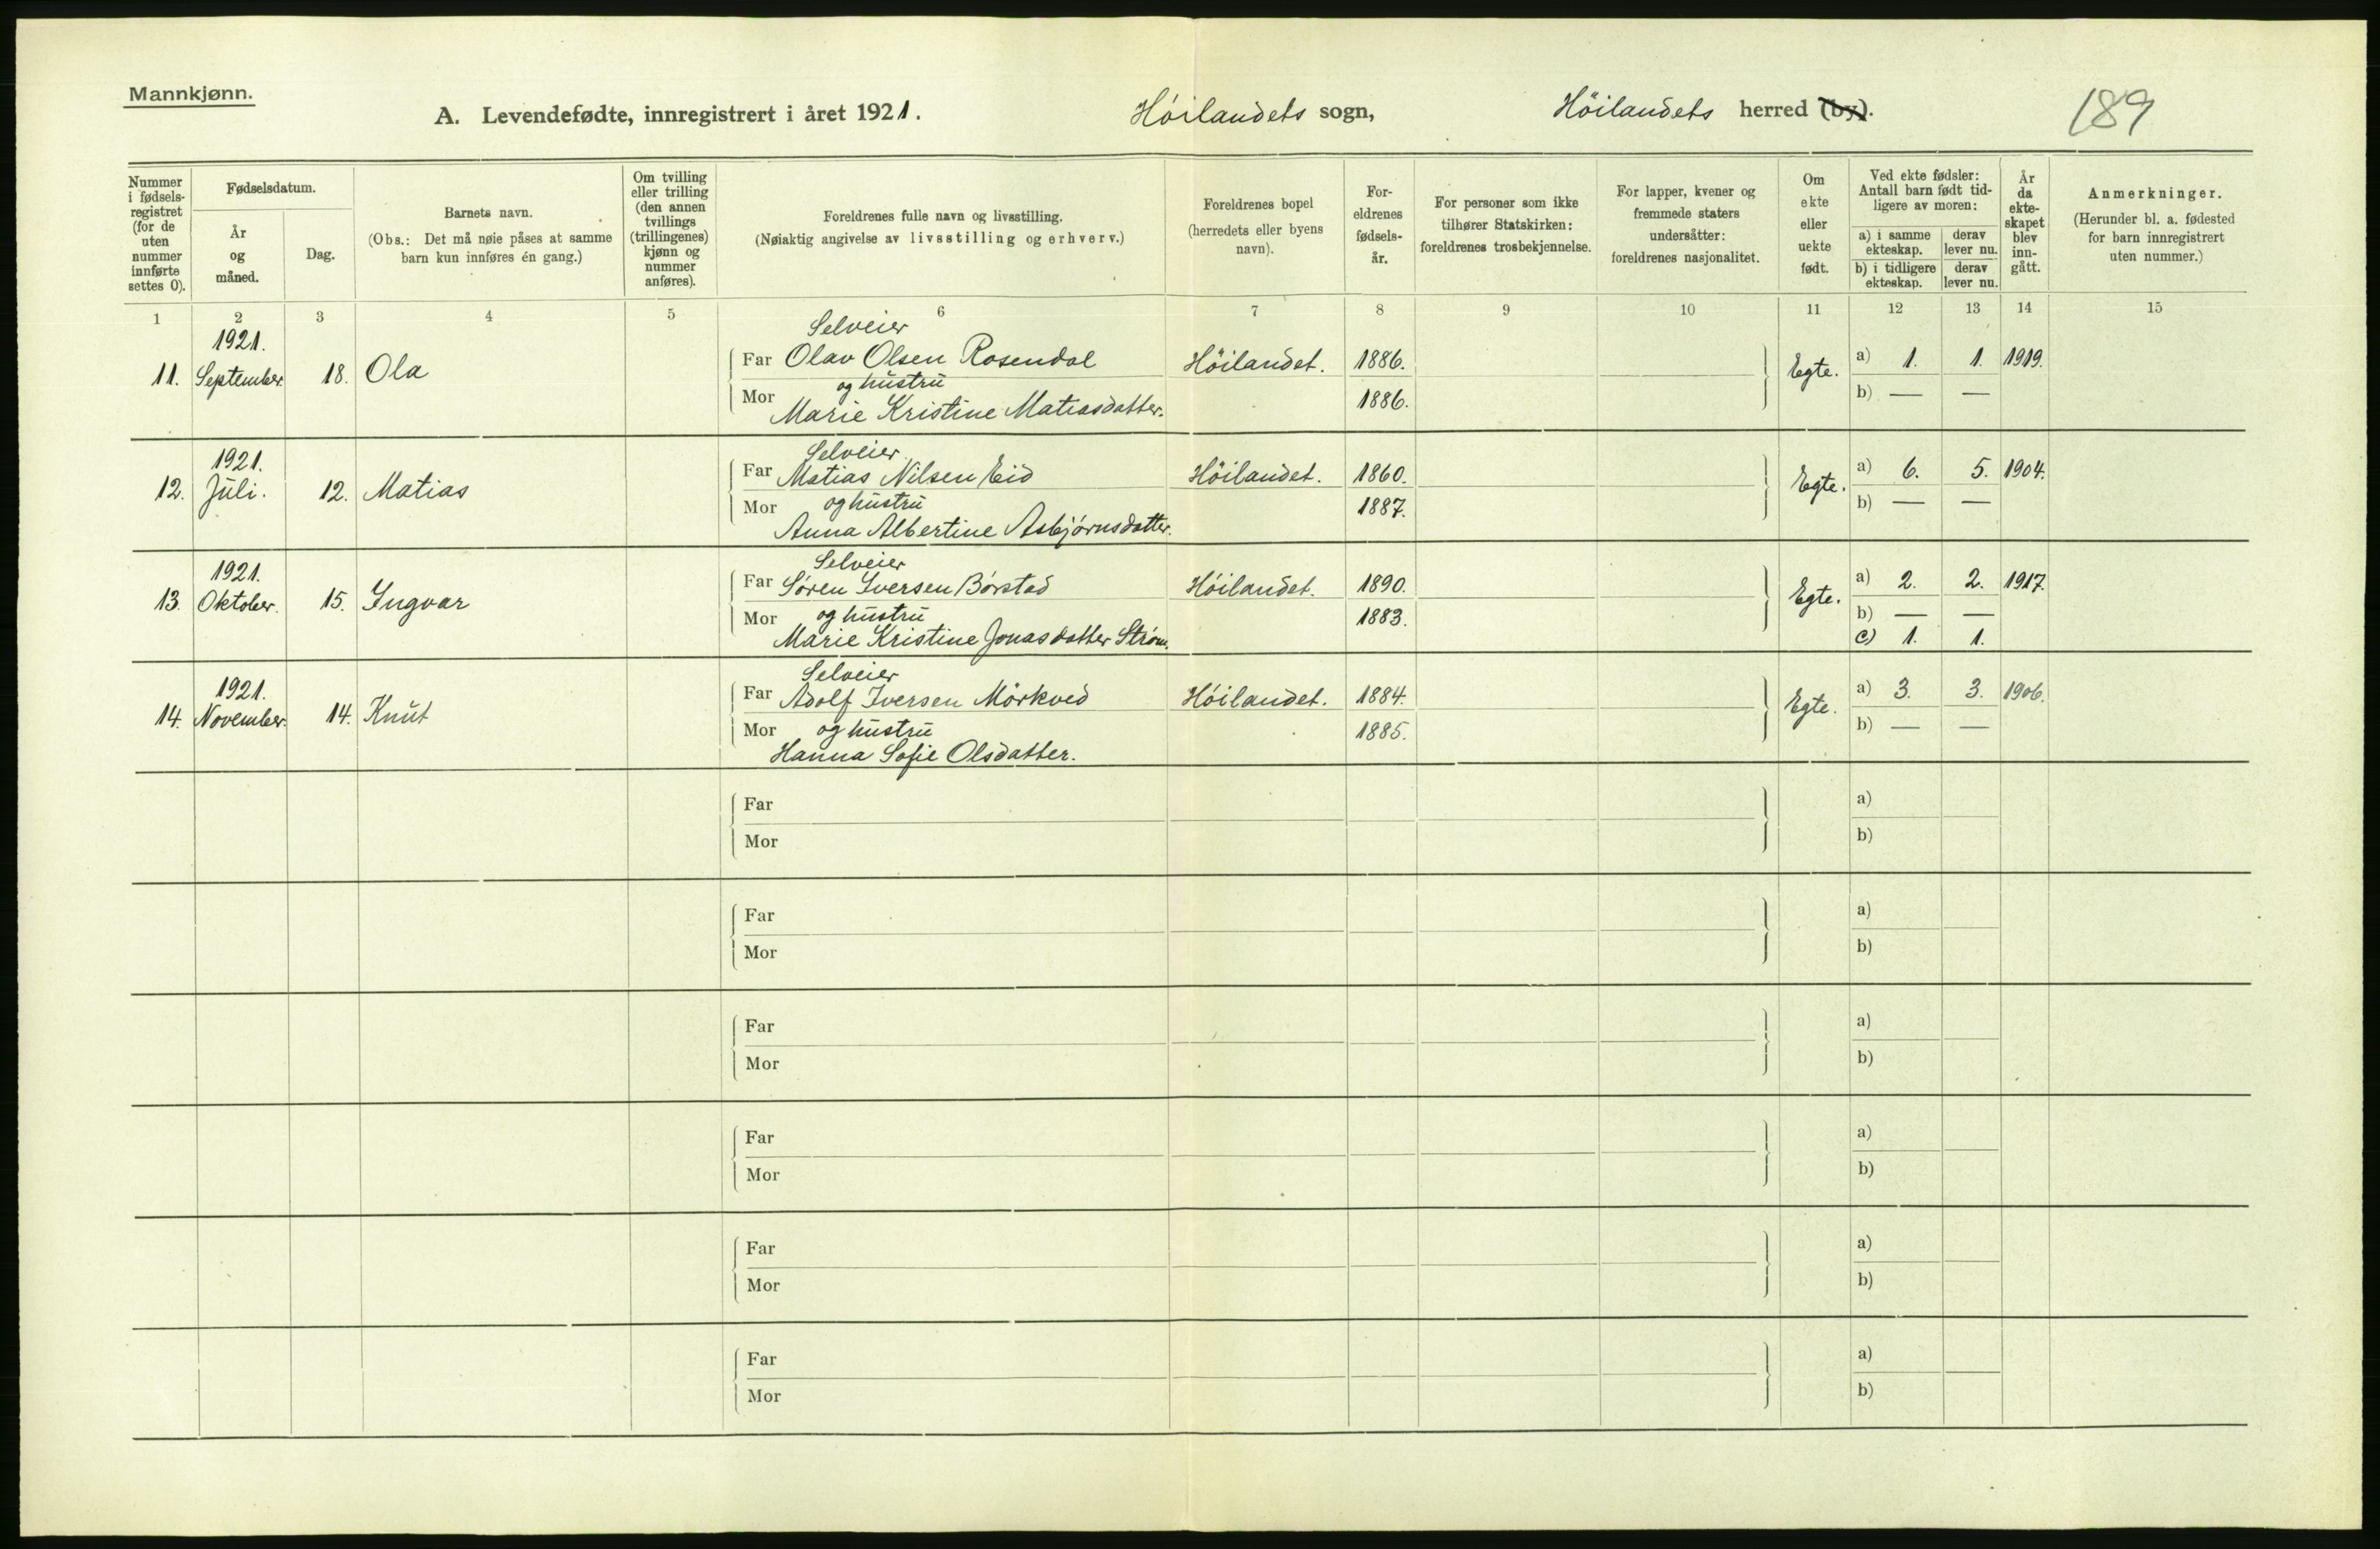 Mannkjønn.
A. Levendefødte, innregistrert i året 1921. Höilandets sogn, Höilandets herred (by). 189
Nummer i fødsels-registret (for de uten nummer innførte settes 0).
Fødselsdatum.
År og måned.
Dag.
Barnets navn.
(Obs.: Det må nøie påses at samme barn kun innføres én gang.)
Om tvilling eller trilling (den annen tvillings (trillingenes) kjønn og nummer anføres).
Foreldrenes fulle navn og livsstilling.
(Nøiaktig angivelse av livsstilling og erhverv.)
Foreldrenes bopel
(herredets eller byens navn).
For-eldrenes fødsels-år.
For personer som ikke tilhører Statskirken: foreldrenes trosbekjennelse.
For lapper, kvener og fremmede staters undersåtter: foreldrenes nasjonalitet.
Om ekte eller uekte født.
Ved ekte fødsler: Antall barn født tid-ligere av moren:
a) i samme ekteskap. derav lever nu.
b) i tidligere ekteskap. derav lever nu.
År da ekte-skapet blev inn-gått.
Anmerkninger.
(Herunder bl. a. fødested for barn innregistrert uten nummer.)
1 2 3 4 5 6 7 8 9 10 11 12 13 14 15
1921. Selveier
11. September 18. Ola Far Olav Olsen Rosendal Höilandet. 1886. Egte. a) 1. 1. 1919.
og hustru
Mor Marie Kristine Matiasdatter. 1886. b) — —
1921. Selveier
12. Juli. 12. Matias Far Matias Nilsen Eid Höilandet. 1860. Egte. a) 6. 5. 1904.
og hustru
Mor Anna Albertine Asbjörnsdatter. 1887. b) — —
1921. Selveier
13. Oktober. 15. Ingvar Far Sören Iversen Börstad Höilandet. 1890. Egte. a) 2. 2. 1917.
og hustru
Mor Marie Kristine Jonasdatter Ström. 1883. b) — —
c) 1. 1.
1921. Selveier
14. November. 14. Knut Far Adolf Iversen Mörkved Höilandet. 1884. Egte. a) 3. 3. 1906.
og hustru
Mor Hanna Sofie Olsdatter. 1885. b) — —
Far a)
Mor b)
Far a)
Mor b)
Far a)
Mor b)
Far a)
Mor b)
Far a)
Mor b)
Far a)
Mor b)